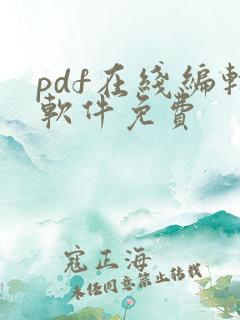 pdf在綫編輯
軟件免費
寇正海
未任同意禁止轉載